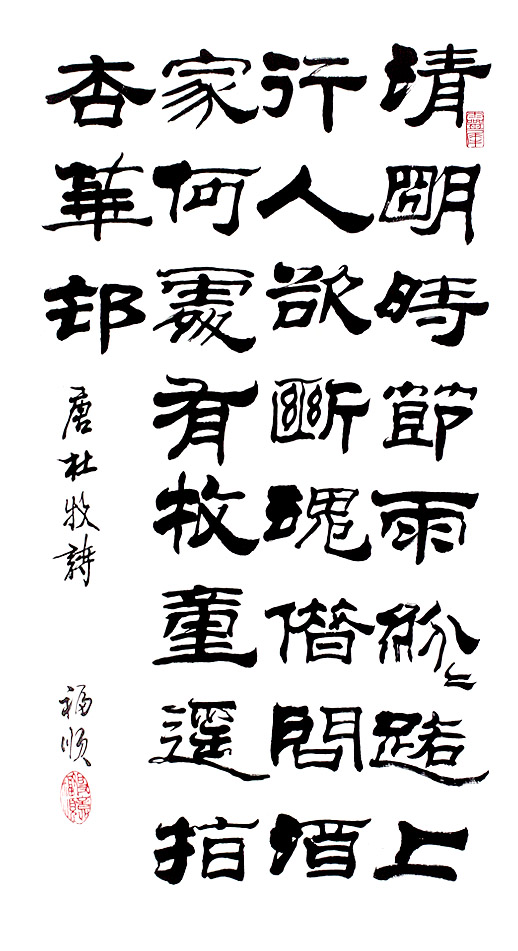 清朙時節雨紛〻路上
行人欲斷魂借問酒
家何處有牧童遙指
杏華邨
唐杜牧詩
福順